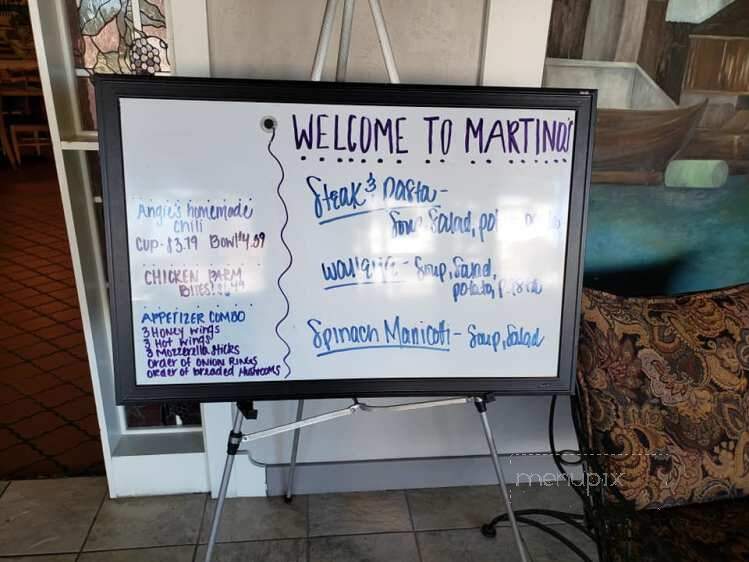 WELCOME TO MARTINO'S
Steak & Pasta -
Soup, Salad,
Walleye - Soup, Salad,
potato,
Spinach Manicott - Soup, Salad
Angie's homemade
chili
Cup - $3.79 Bowl $4.09
CHICKEN PARM
BITES!
APPETIZER COMBO
3 Honey wings
3 Hot wings
3 Mozzerella sticks
order of ONION RINGS
order of breaded mushrooms
menupix